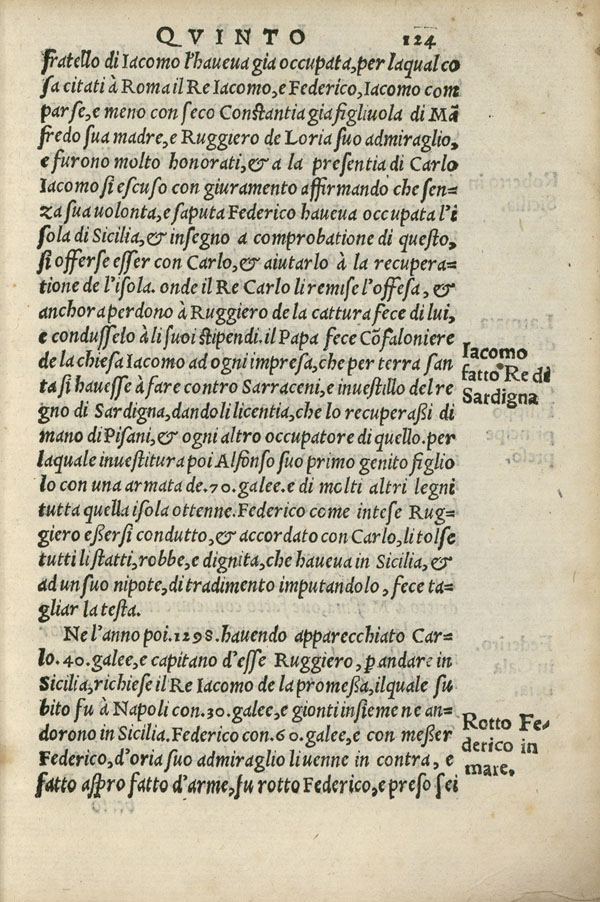 QVINTO 124
fratello di Iacomo l'haueua gia occupata, per laqual co
sa citati à Roma il Re Iacomo, e Federico, Iacomo com
parse, e meno con seco Constantia gia figliuola di Mã
fredo sua madre, e Ruggiero de Loria suo admiraglio,
e furono molto honorati, & a la presentia di Carlo
Iacomo si escuso con giuramento affirmando che sen=
za sua uolonta, e saputa Federico haueua occupata l'i
sola di Sicilia, & insegno a comprobatione di questo,
si offerse esser con Carlo, & aiutarlo à la recupera=
tione de l'isola. onde il Re Carlo li remise l'offesa, &
anchora perdono à Ruggiero de la cattura fece di lui,
e condusselo à li suoi stipendi. il Papa fece Cõfaloniere
de la chiesa Iacomo ad ogni impresa, che per terra san
ta si hauesse à fare contro Sarraceni, e inuestillo del re
gno di Sardigna, dandoli licentia, che lo recuperaßi di
mano di Pisani, & ogni altro occupatore di quello. per
laquale inuestitura poi Alfonso suo primo genito figlio
lo con una armata de .70. galee. e di molti altri legni
tutta quella isola ottenne. Federico come intese Rug=
giero eßersi condutto, & accordato con Carlo, li tolse
tutti li statti, robbe, e dignita, che haueua in Sicilia, &
ad un suo nipote, di tradimento imputandolo, fece ta=
gliar la testa.
Ne l'anno poi .1298. hauendo apparecchiato Car=
lo .40. galee, e capitano d'esse Ruggiero, ꝑ andare in
Sicilia, richiese il Re Iacomo de la promeßa, ilquale su
bito fu à Napoli con .30. galee, e gionti insieme ne an=
dorono in Sicilia. Federico con .60. galee, e con meßer
Federico, d'oria suo admiraglio li uenne in contra, e
fatto aspro fatto d'arme, fu rotto Federico, e preso sei
Iacomo
fatto Re di
Sardigna
Rotto Fe-
derico in
mare.